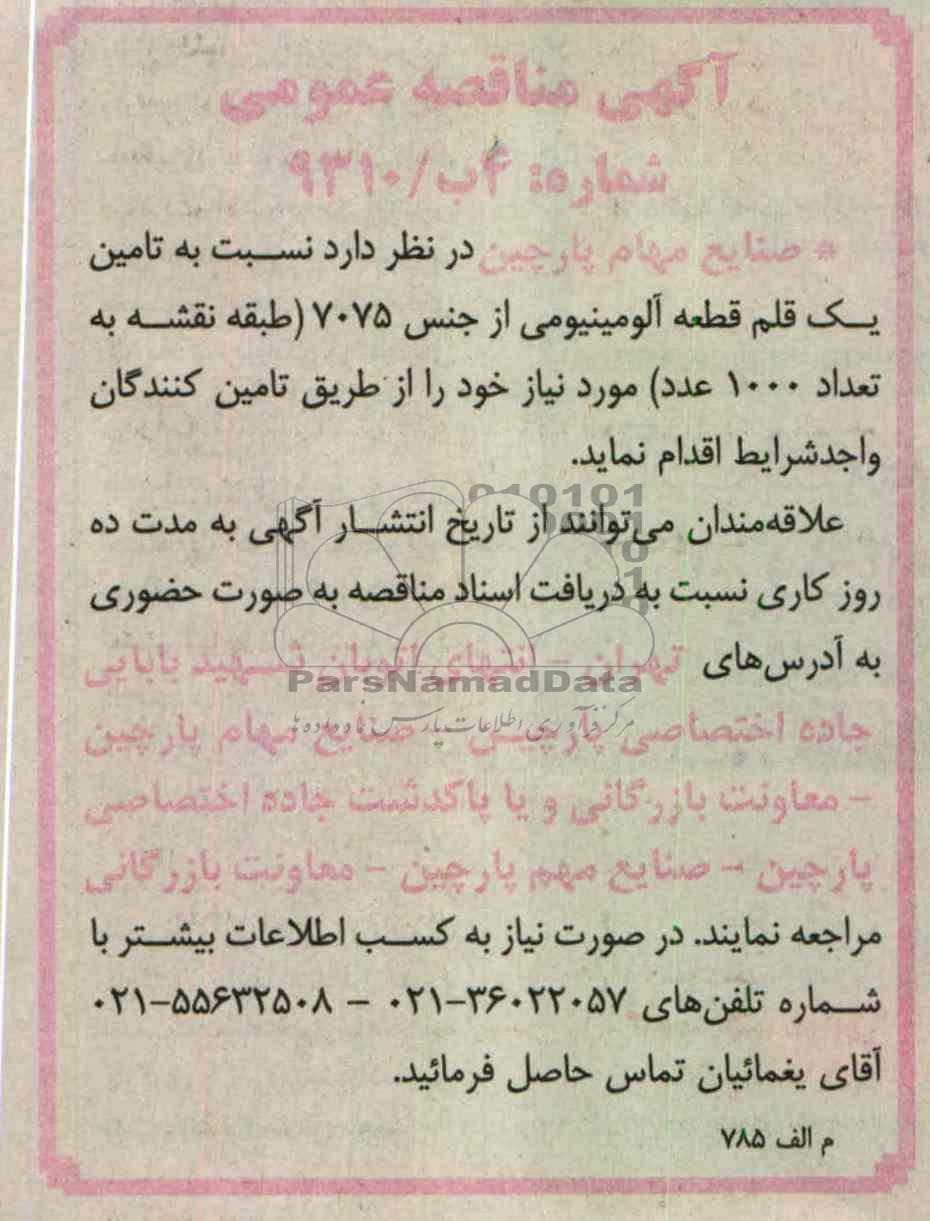 آگهی مناقصه عمومی
شماره: ۴ب/۹۳۱۰
* صنایع مهام پارچین در نظر دارد نسبت به تامین
یک قلم قطعه آلومینیومی از جنس ۷۰۷۵ (طبقه نقشه به
تعداد ۱۰۰۰ عدد) مورد نیاز خود را از طریق تامین کنندگان
واجدشرایط اقدام نماید.
علاقه‌مندان می‌توانند از تاریخ انتشار آگهی به مدت ده
روز کاری نسبت به دریافت اسناد مناقصه به صورت حضوری
به آدرس‌های تهران – انتهای اتوبان شهید بابایی
جاده اختصاصی پارچین – صنایع مهام پارچین
– معاونت بازرگانی و یا پاکدشت جاده اختصاصی
پارچین – صنایع مهم پارچین – معاونت بازرگانی
مراجعه نمایند. در صورت نیاز به کسب اطلاعات بیشتر با
شماره تلفن‌های ۳۶۰۲۲۰۵۷-۰۲۱ – ۵۵۶۳۲۵۰۸-۰۲۱
آقای یغمائیان تماس حاصل فرمائید.
م الف ۷۸۵
ParsNamadData
مرکز فرآوری اطلاعات پارس نماد داده ها